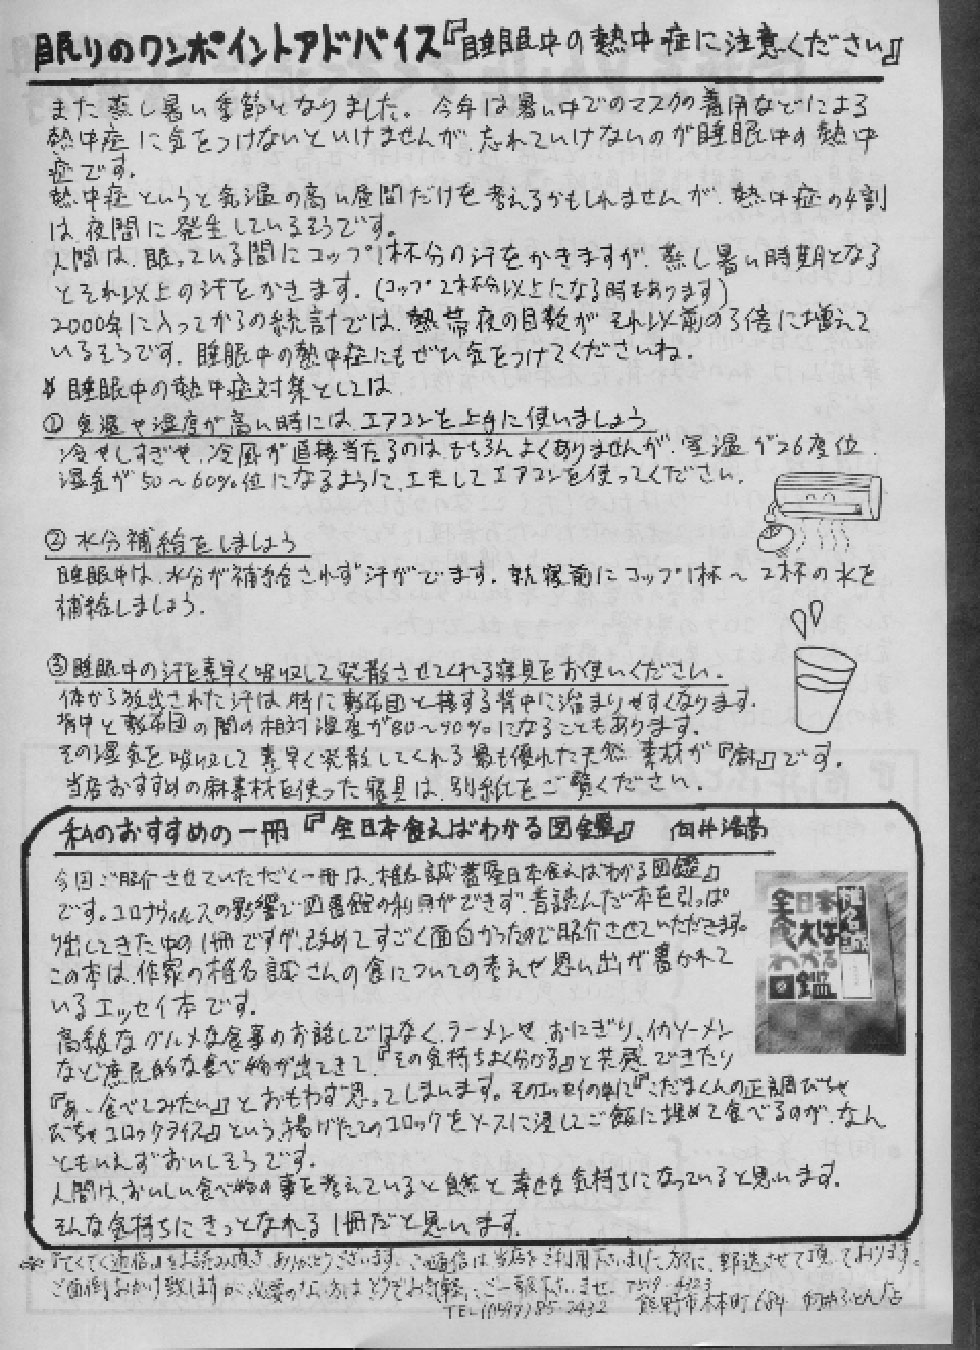 眠りのワンポイントアドバイス『睡眠中の熱中症に注意ください』
また蒸し暑い季節となりました。今年は暑い中でのマスクの着用などによる
熱中症に気をつけないといけませんが、忘れていけないのが睡眠中の熱中
症です。
熱中症というと気温の高い昼間だけを考えるかもしれませんが、熱中症の4割
は、夜間に発生しているそうです。
人間は、眠っている間にコップ1杯分の汗をかきますが、蒸し暑い時期となる
とそれ以上の汗をかきます。(コップ2杯分以上になる時もあります)
2000年に入ってからの統計では、熱帯夜の日数がそれ以前の3倍に増えて
いるそうです。睡眠中の熱中症にもぜひ気をつけてくださいね。
睡眠中の熱中症対策としては
① 気温や湿度が高い時には、エアコンを上手に使いましょう
冷やしすぎや、冷風が直接当たるのは、もちろんよくありませんが、室温が26度位、
湿度が50～60%位になるように、工夫してエアコンを使ってください。
② 水分補給をしましょう
睡眠中は、水分が補給されず汗がでます。就寝前にコップ1杯～2杯の水を
補給しましょう。
③ 睡眠中の汗を素早く吸収して発散させてくれる寝具をお使いください。
体から放出された汗は、特に敷布団と接する背中に溜まりやすくなります。
背中と敷布団の間の相対湿度が80～90%になることもあります。
その湿気を吸収して素早く発散してくれる最も優れた天然素材が『麻』です。
当店おすすめの麻素材を使った寝具は、別紙をご覧ください。
私のおすすめの一冊『全日本食えばわかる図鑑』 向井
今回ご紹介させていただく一冊は、椎名誠著『全日本食えばわかる図鑑』
です。コロナウィルスの影響で図書館の利用ができず、昔読んだ本を引っぱ
り出してきた中の1冊ですが、改めてすごく面白かったので紹介させていただきます。
この本は、作家の椎名誠さんの食についての考えや思い出が書かれて
いるエッセイ本です。
高級なグルメな食事のお話しではなく、ラーメンや、おにぎり、イカソーメン
など庶民的な食べ物が出てきて、『その気持ちよく分かる』と共感できたり
『あー食べてみたい』とおもわず思ってしまいます。そのエッセイの中に『こだまくんの正調びちゃ
びちゃコロッケライス』という、揚げたてのコロッケをソースに浸してご飯に埋めて食べるのが、なん
ともいえずおいしそうです。
人間は、おいしい食べ物の事を考えていると自然と幸せな気持ちになっていると思います。
そんな気持ちにきっとなれる1冊だと思います。
全日本
食えば
わかる
図鑑
椎名誠
※『てくてく通信』をお読み頂き、ありがとうございます。この通信は当店をご利用下さいました方に、郵送させて頂いております。
ご面倒おかけ致しますが、必要のない方はどうぞお気軽に、ご一報下さいませ。〒519-4323
TEL(0597)85-2432 熊野市木本町684 向井ふとん店